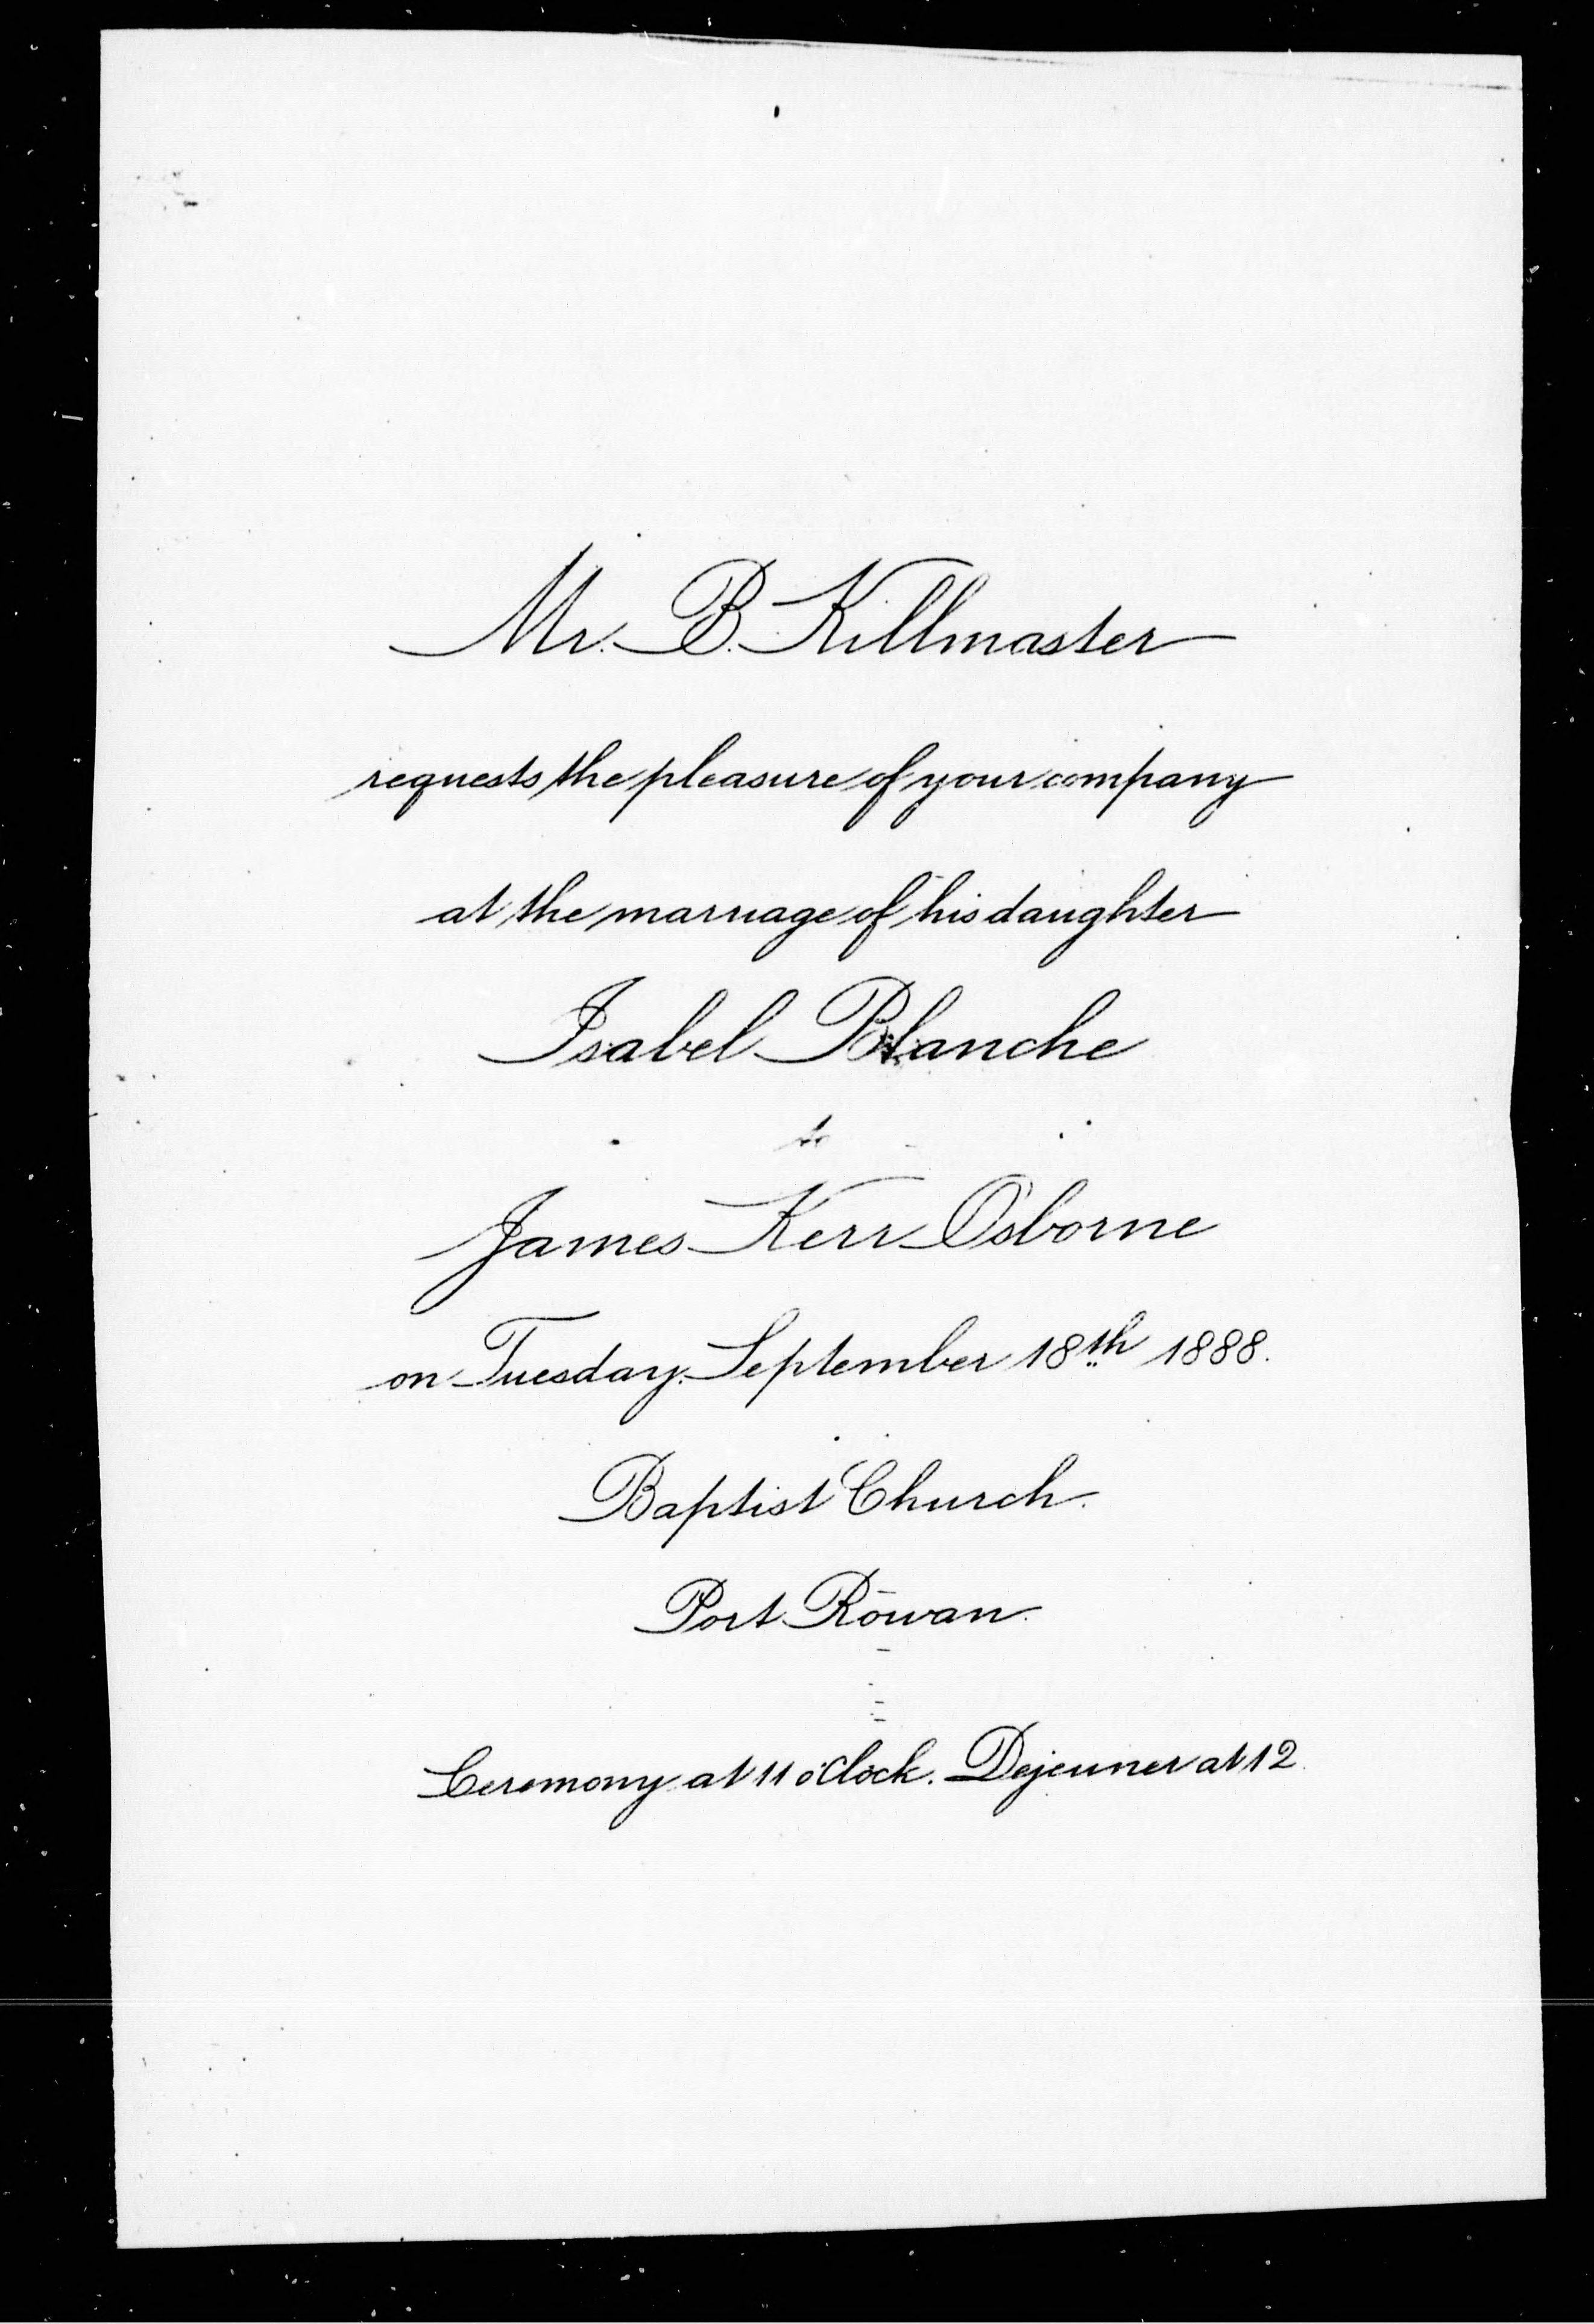 Mr. B. Killmaster
requests the pleasure of your company
at the marriage of his daughter
Isabel Blanche
to
James Kerr Osborne
on Tuesday. September 18th 1888.
Baptist Church.
Port Rowan.
Ceremony at 11 o'clock. Dejeuner at 12.